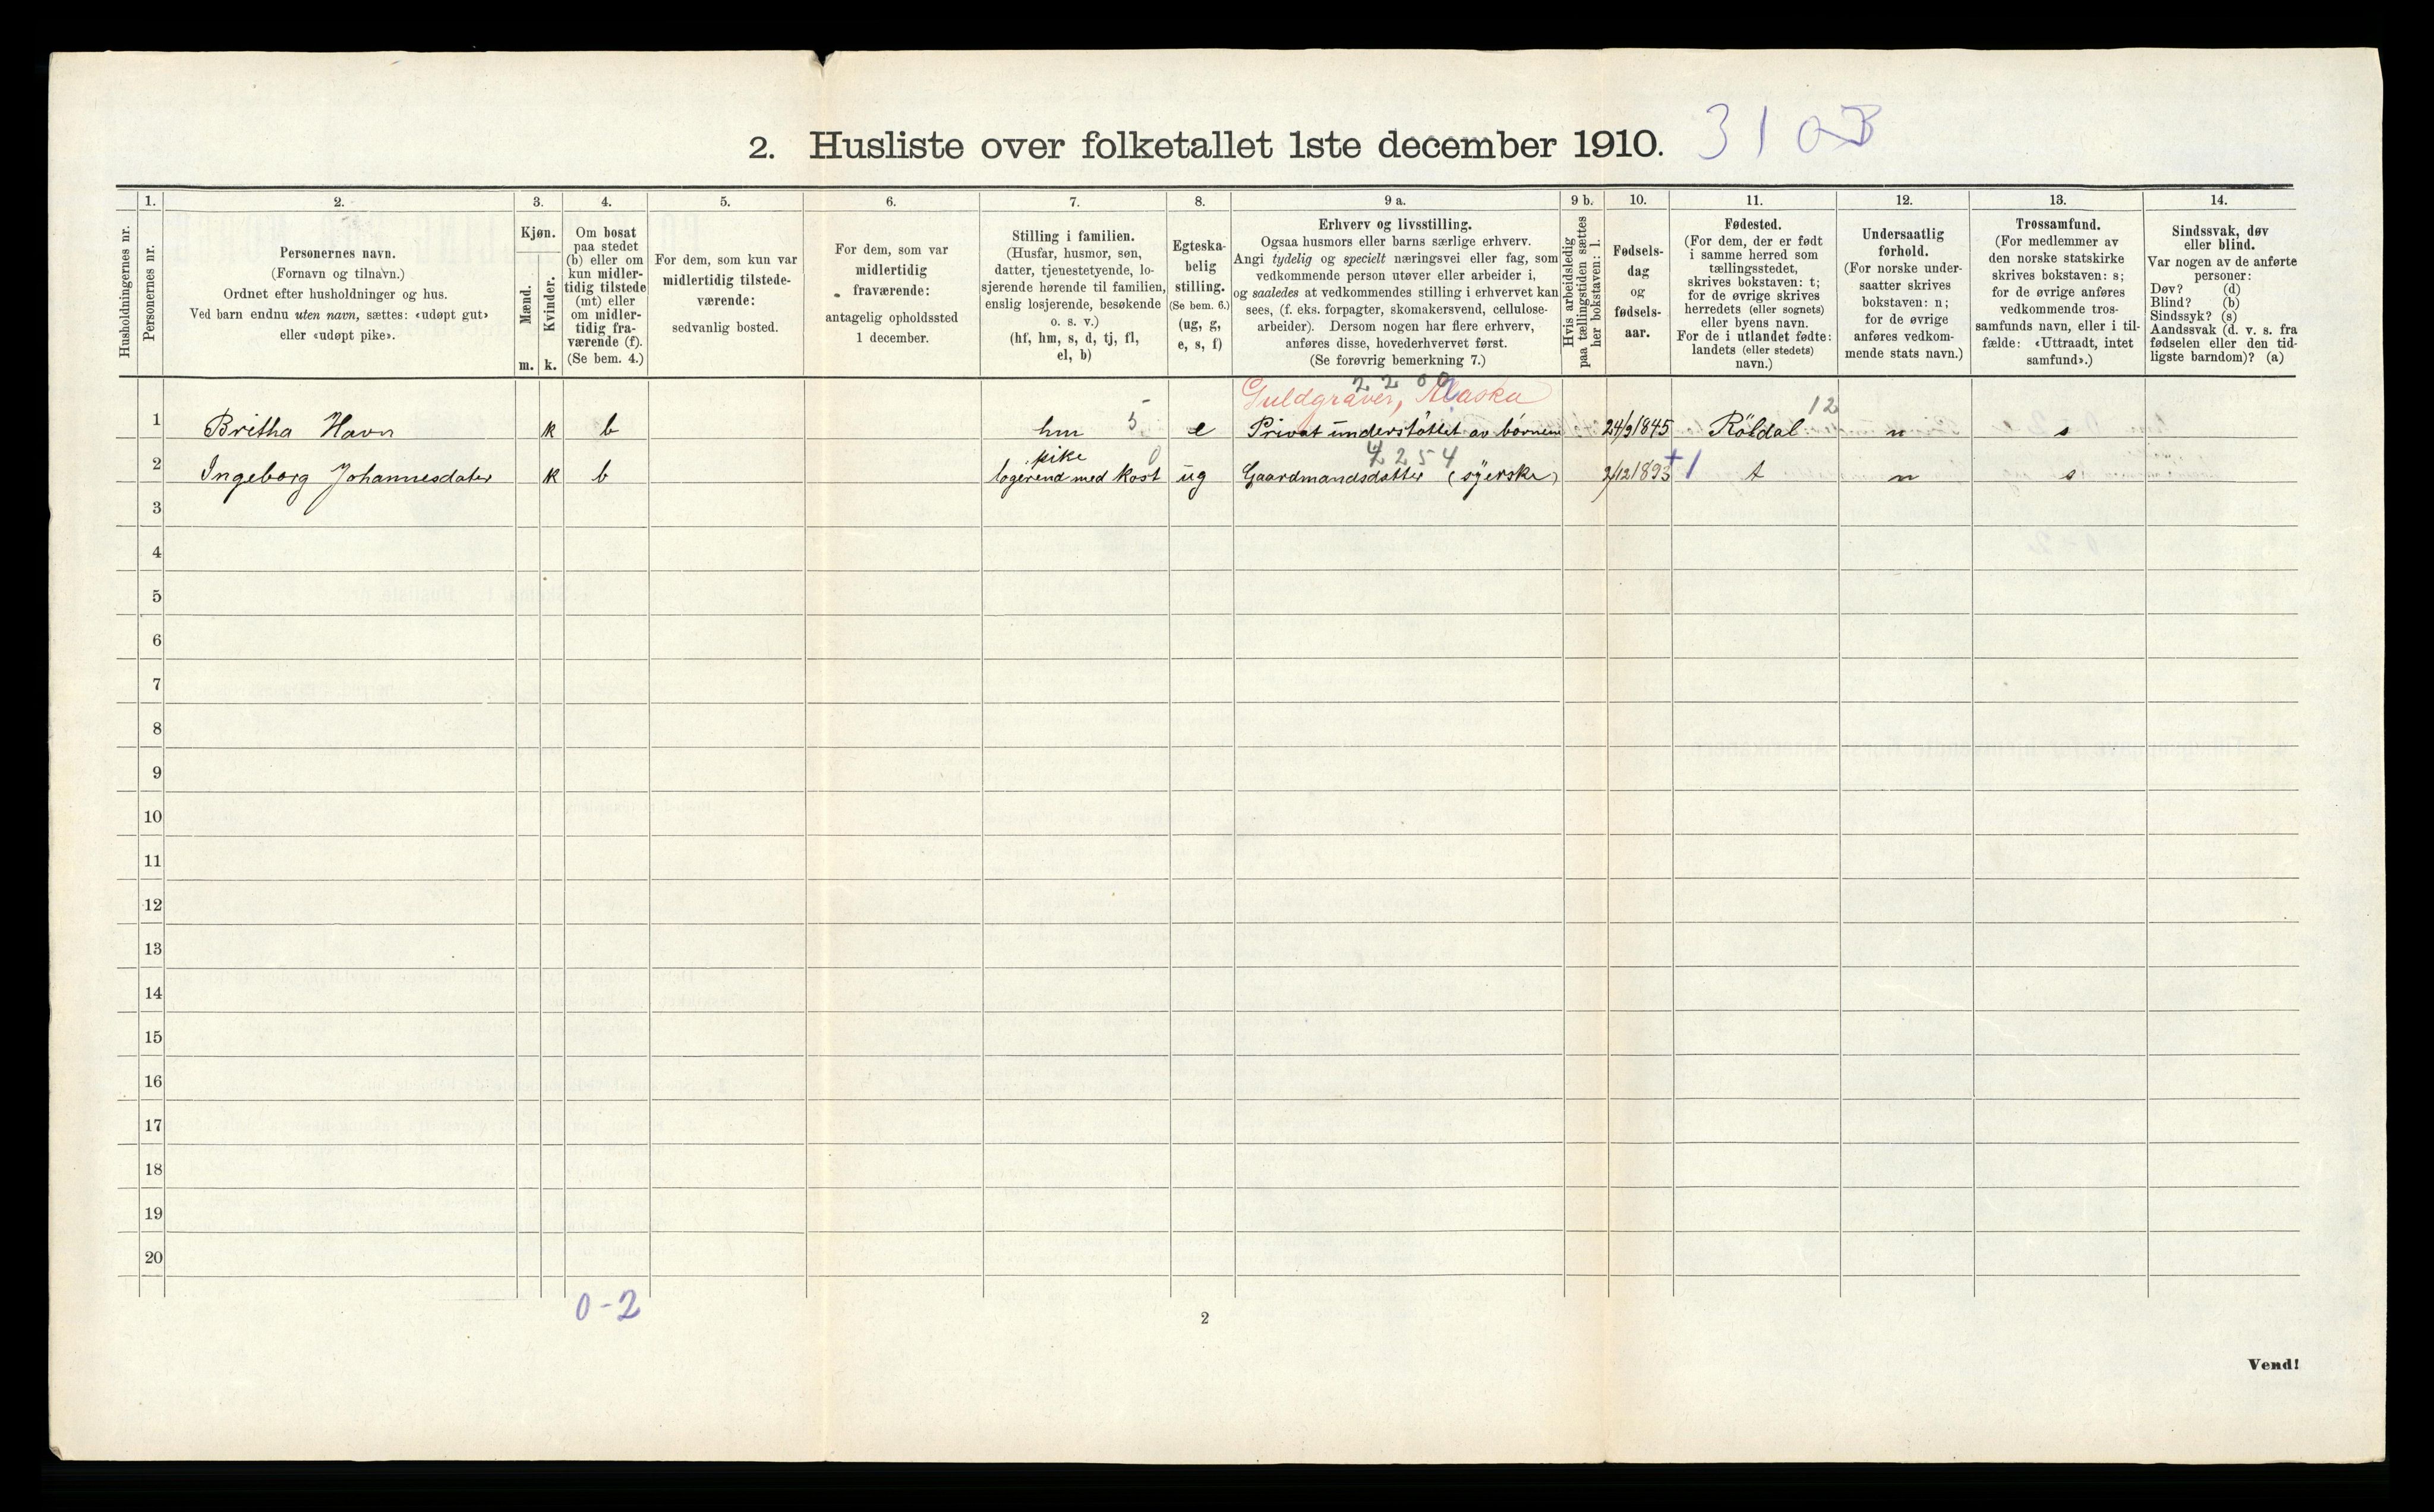 2. Husliste over folketallet 1ste december 1910. 310B
1. 2. 3. 4. 5. 6. 7. 8. 9 a. 9 b. 10. 11. 12. 13. 14.
Husholdningernes nr.
Personernes nr.
Personernes navn.
(Fornavn og tilnavn.)
Ordnet efter husholdninger og hus.
Ved barn endnu uten navn, sættes: «udøpt gut»
eller «udøpt pike».
Kjøn.
Mænd.
Kvinder.
m. k.
Om bosat
paa stedet
(b) eller om
kun midler-
tidig tilstede
(mt) eller
om midler-
tidig fra-
værende (f).
(Se bem. 4.)
For dem, som kun var
midlertidig tilstede-
værende:
sedvanlig bosted.
For dem, som var
midlertidig
fraværende:
antagelig opholdssted
1 december.
Stilling i familien.
(Husfar, husmor, søn,
datter, tjenestetyende, lo-
sjerende hørende til familien,
enslig losjerende, besøkende
o. s. v.)
(hf, hm, s, d, tj, fl,
el, b)
Egteska-
belig
stilling.
(Se bem. 6.)
(ug, g,
e, s, f)
Erhverv og livsstilling.
Ogsaa husmors eller barns særlige erhverv.
Angi tydelig og specielt næringsvei eller fag, som
vedkommende person utøver eller arbeider i,
og saaledes at vedkommendes stilling i erhvervet kan
sees, (f. eks. forpagter, skomakersvend, cellulose-
arbeider). Dersom nogen har flere erhverv,
anføres disse, hovederhvervet først.
(Se forøvrig bemerkning 7.)
Hvis arbeidsledig
paa tællingstiden sættes
her bokstaven: l.
Fødsels-
dag
og
fødsels-
aar.
Fødested.
(For dem, der er født
i samme herred som
tællingsstedet,
skrives bokstaven: t;
for de øvrige skrives
herredets (eller sognets)
eller byens navn.
For de i utlandet fødte:
landets (eller stedets)
navn.)
Undersaatlig
forhold.
(For norske under-
saatter skrives
bokstaven: n;
for de øvrige
anføres vedkom-
mende stats navn.)
Trossamfund.
(For medlemmer av
den norske statskirke
skrives bokstaven: s;
for de øvrige anføres
vedkommende tros-
samfunds navn, eller i til-
fælde: «Uttraadt, intet
samfund».)
Sindssvak, døv
eller blind.
Var nogen av de anførte
personer:
Døv? (d)
Blind? (b)
Sindssyk? (s)
Aandssvak (d. v. s. fra
fødselen eller den tid-
ligste barndom)? (a)
2200
Guldgraver, Alaska
1 Britha Havn k b hm 5 e Privat understöttet av börnene 24/9 1845 Röldal 12 n s
pike 0 4254
2 Ingeborg Johannesdater k b logerend med kost ug Gaardmandsdatter (syerske) 2/12 1893 +1 t n s
3
4
5
6
7
8
9
10
11
12
13
14
15
16
17
18
19
20
0-2
2
Vend!